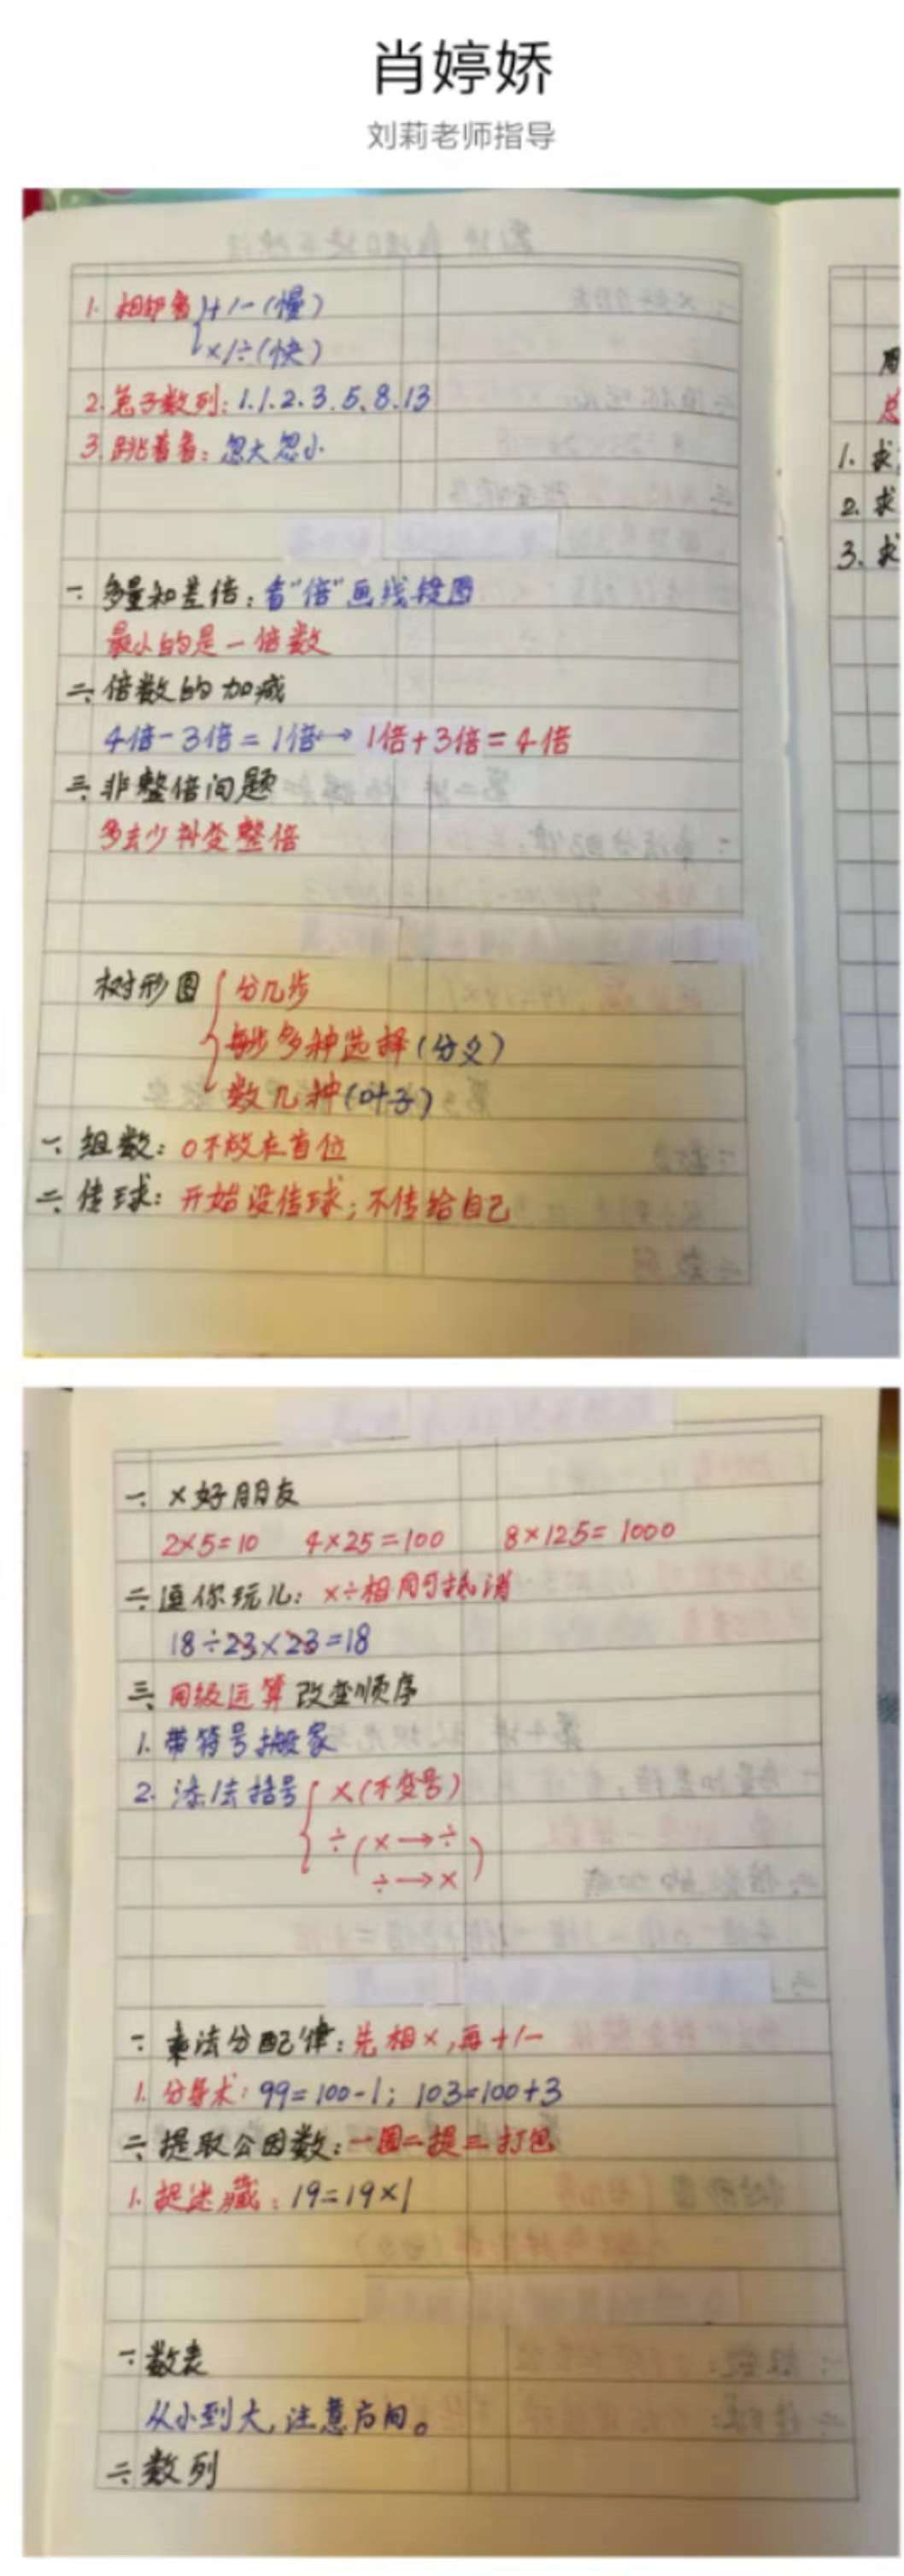 肖婷娇
刘莉老师指导
1. 相邻看 +/-(慢)
×/÷(快)
2. 兔子数列: 1.1.2.3.5.8.13
3. 跳着看: 忽大忽小.
一. 多量和差倍: 看"倍"画线段图
最小的是一倍数
二. 倍数的加减
4倍-3倍=1倍↔ 1倍+3倍=4倍
三. 非整倍问题
多去少补变整倍
树形图 { 分几步
每步多种选择(分叉)
数几种(叶子)
一. 组数: 0不放在首位
二. 传球: 开始没传球; 不传给自己
周
总
1. 求
2. 求
3. 求
一. ×好朋友
2×5=10 4×25=100 8×125=1000
二. 逗你玩儿: ×÷相同可抵消
18÷23×23=18
三. 同级运算改变顺序
1. 带符号搬家
2. 添/去括号 { ×(不变号)
÷(×→÷
÷→×)
一. 乘法分配律: 先相×,再+/-
1. 分身术: 99=100-1; 103=100+3
二. 提取公因数: 一圈二提三打包
1. 捉迷藏: 19=19×1
一. 数表
从小到大, 注意方向。
二. 数列